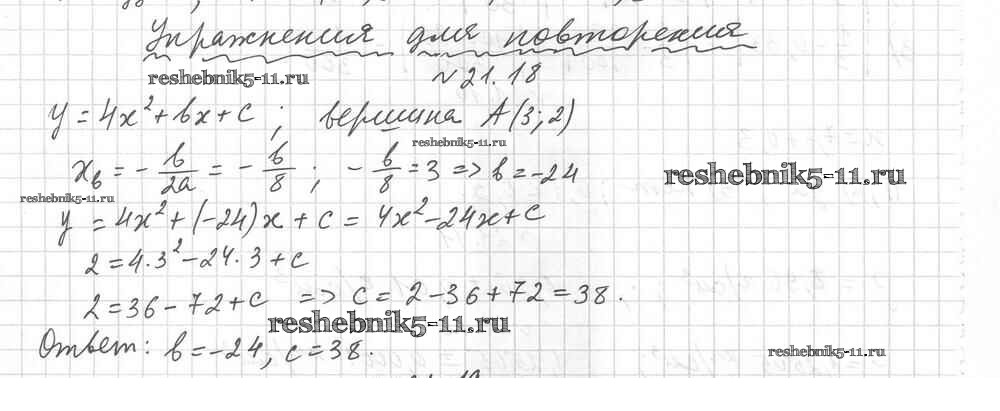 Упражнения для повторения
reshebnik5-11.ru
№21.18
y = 4x² + bx + c ; вершина A(3; 2)
reshebnik5-11.ru
x_в = - b/2a = - b/8 ; - b/8 = 3 => b = -24
reshebnik5-11.ru
reshebnik5-11.ru
y = 4x² + (-24)x + c = 4x² - 24x + c
2 = 4·3² - 24·3 + c
2 = 36 - 72 + c => c = 2 - 36 + 72 = 38.
reshebnik5-11.ru
Ответ: b = -24, c = 38.
reshebnik5-11.ru